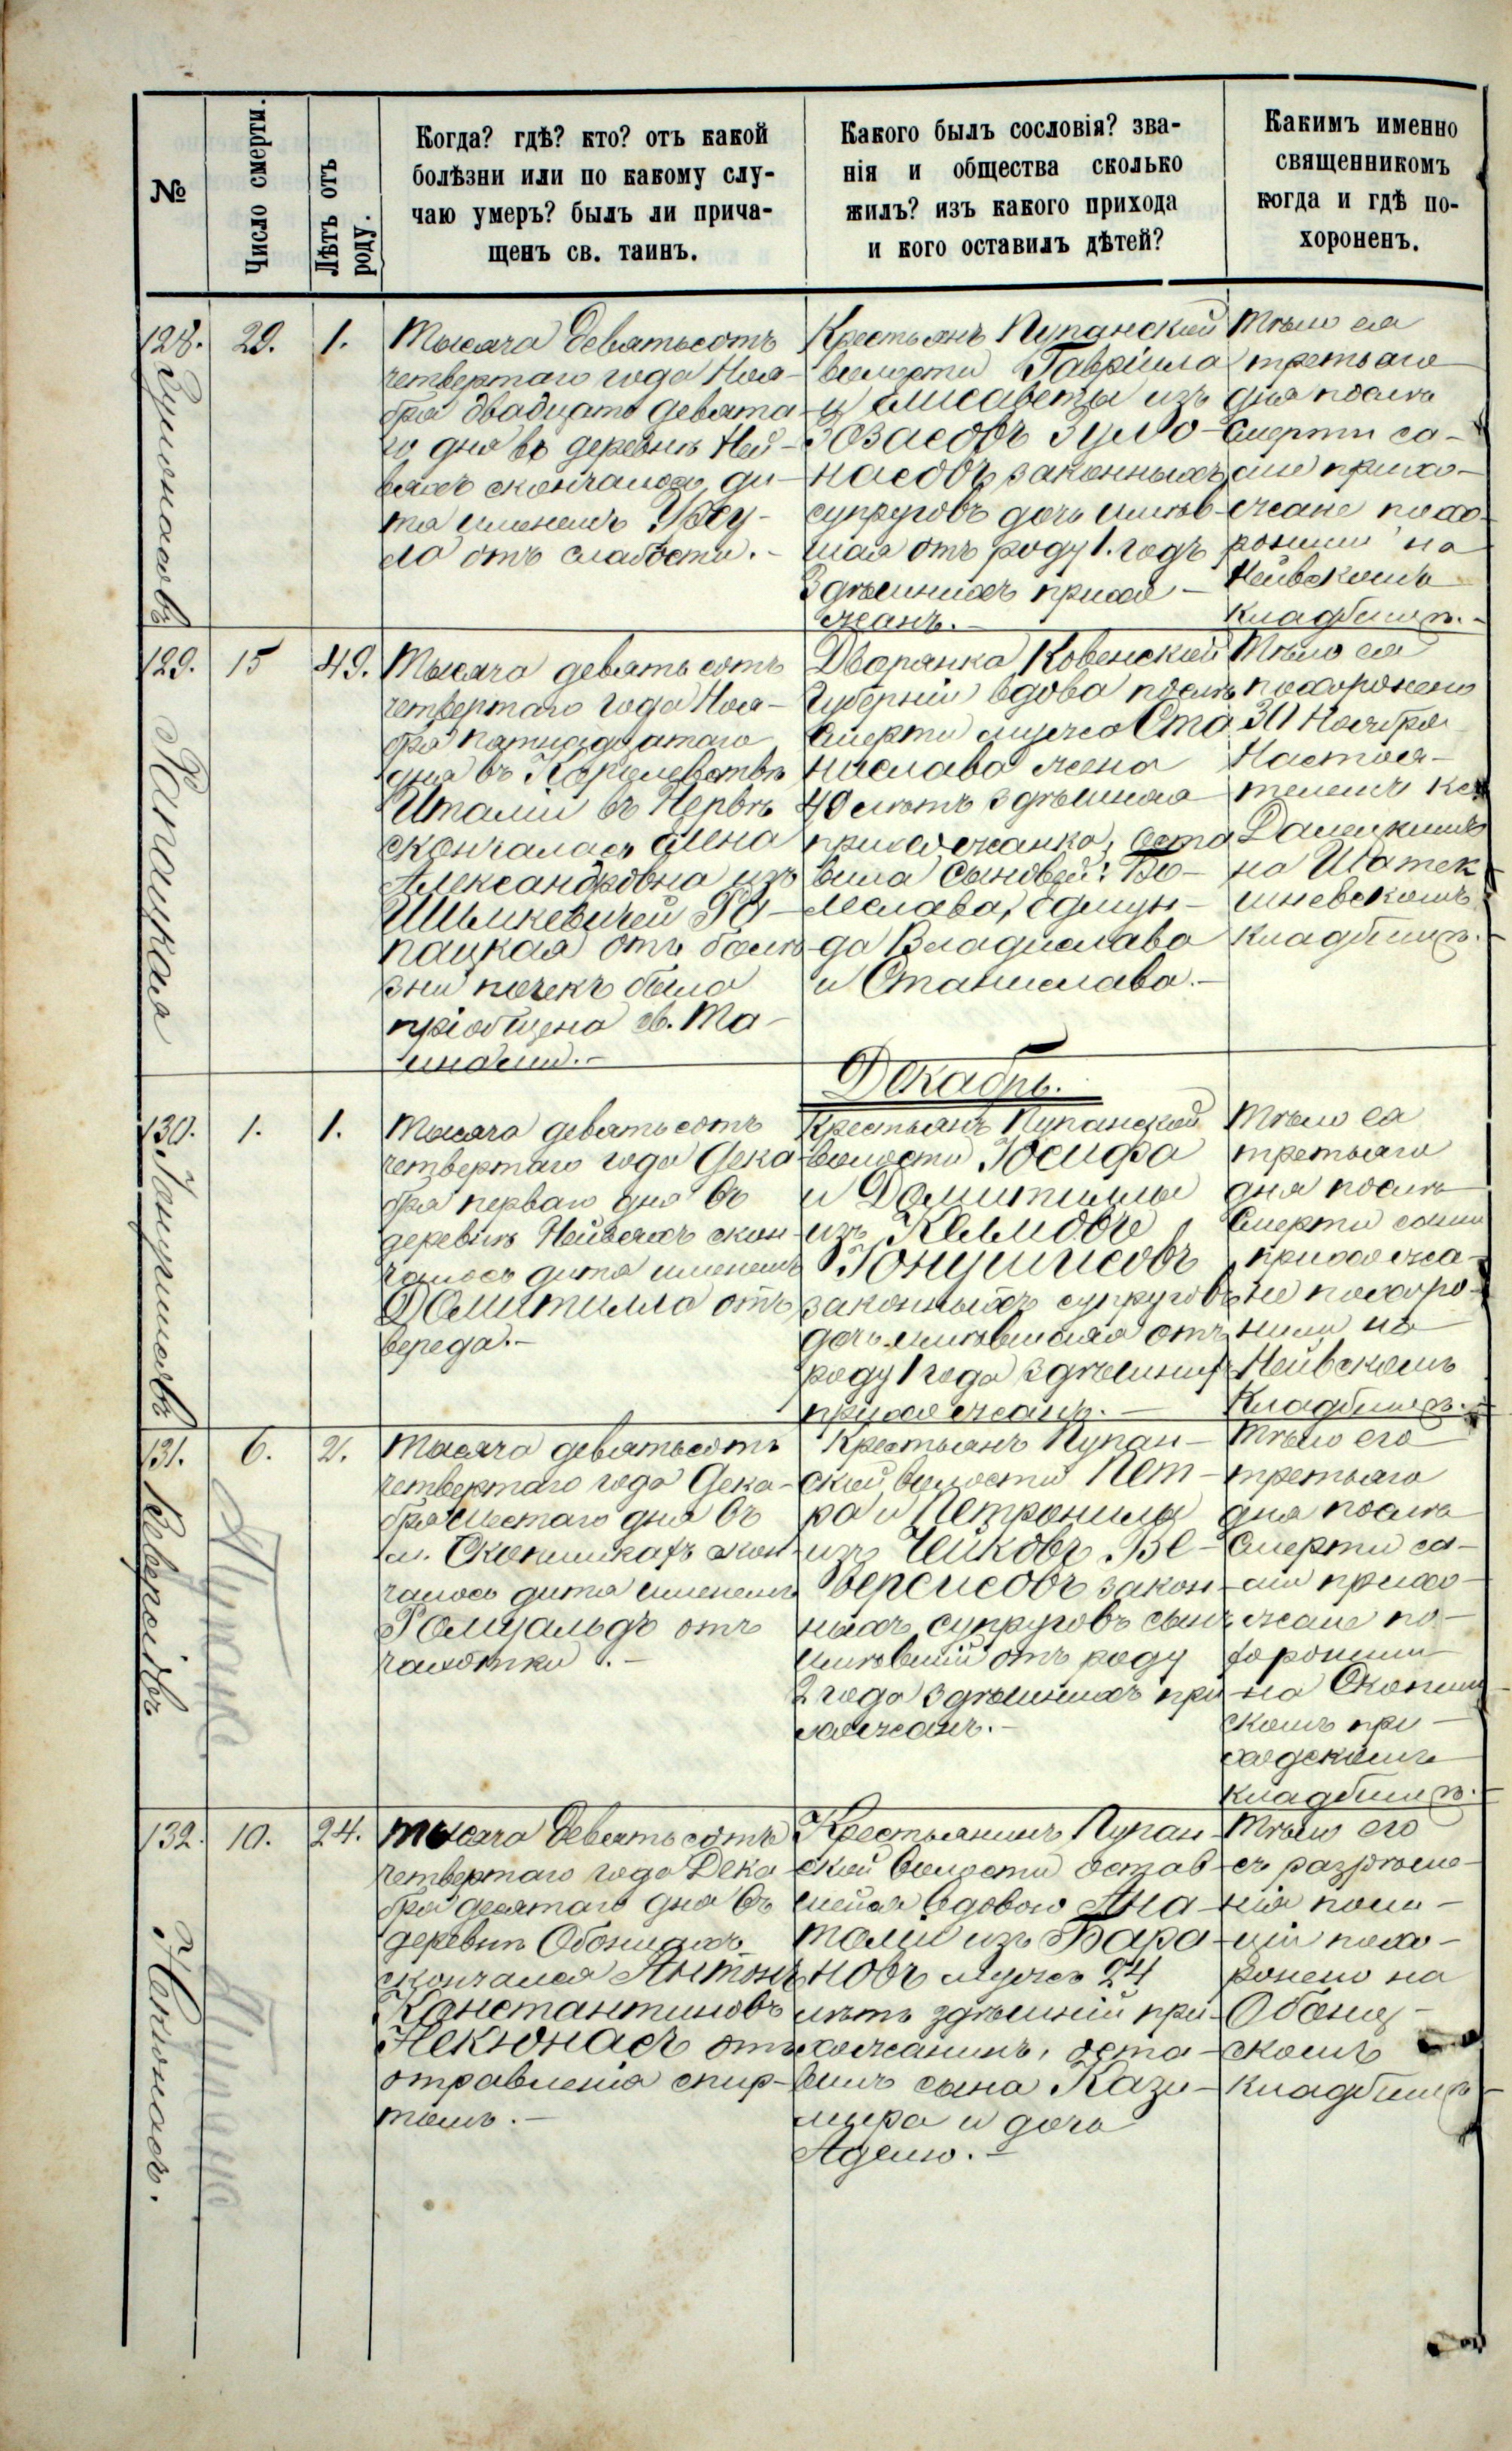 №
Число смерти.
Лѣтъ отъ
роду.
Когда? гдѣ? кто? отъ какой
болѣзни или по какому слу-
чаю умеръ? былъ ли прича-
щенъ св. таинъ.
Какого былъ сословія? зва-
нія и общества сколько
жилъ? изъ какого прихода
и кого оставилъ дѣтей?
Какимъ именно
священникомъ
когда и гдѣ по-
хороненъ.
128.
29.
1.
Тысяча девятьсотъ
четвертаго года Ноя-
бря двадцать девята-
го дня въ деревнѣ Ней-
вяхъ скончалось ди-
тя именемъ Урсу-
ла отъ слабости.-
Крестьянъ Пупанской
волости Гавріила
и Елисаветы изъ
Зозасовъ Зумо-
насовъ законныхъ
супруговъ дочь имѣв-
шая отъ роду 1. годъ
Здѣшнихъ прихо-
жанъ.-
Тѣло ея
третьяго
дня послѣ
смерти са-
ми прихо-
жане похо-
ронили на
Нейвскомъ
кладбищѣ.-
129. Рапацкая
15
49.
Тысяча девятьсотъ
четвертаго года Ноя-
бря пятнадцатаго
дня въ Королевствѣ
Италіи въ Нервѣ
скончалась Елена
Александровна изъ
Шилькевичей Ра-
пацкая отъ болѣ-
зни почекъ была
пріобщена св. Та-
инами.-
Дворянка Ковенской
Губерніи вдова послѣ
смерти мужа Ста
нислава жена
49 лѣтъ здѣшняя
прихожанка, оста
вила сыновей: Бо-
леслава, Едмун-
да Владислава
и Станислава.-
Тѣло ея
похоронено
30 Ноября
Настоя-
телемъ кс.
Далецкимъ
на Шатек
шневскомъ
кладбищѣ.-
Декабрь.
130.
1.
1.
Тысяча девятьсотъ
четвертаго года Дека
бря перваго дня въ
деревнѣ Нейвяхъ скон-
чалось дитя именемъ
Домитилла отъ
вереда.-
Крестьянъ Пупанской
волости Іосифа
и Домитиллы
изъ Келмовъ
Іонушисовъ
законныхъ супруговъ
дочь имѣвшая отъ
роду 1 года здѣшних
прихожанъ.-
Тѣло ея
третьяго
дня послѣ
смерти сами
прихожа-
не похоро-
нили на
Нейвскомъ
Кладбищѣ.-
131.
6.
2.
Тысяча девятьсотъ
четвертаго года Дека-
бря шестаго дня въ
м. Скопишкахъ скон-
чалось дитя именемъ
Ромуальдъ отъ
чахотки.-
Крестьянъ Пупан-
ской волости Пет-
ра и Петронилы
изъ Чейковъ Ве-
версисовъ закон-
ныхъ супруговъ сынъ
имѣвшій отъ роду
2 года здѣшнихъ при
хожанъ.-
Тѣло его
третьяго
дня послѣ
смерти са-
ми прихо-
жане по-
хоронили
на Скопиш
скомъ при-
ходскомъ
кладбищѣ.-
132. Некюнасъ.
10.
24.
Тысяча девятьсотъ
четвертаго года Дека
бря десятаго дня въ
деревнѣ Обонцахъ
скончался Антонъ
Константиновъ
Некюнасъ отъ
отравленія спир-
томъ.-
Крестьянинъ Пупан-
ской волости остав-
шейся вдовою Ана-
толіи изъ Бара-
новъ мужъ 24
лѣтъ здѣшній при-
хожанинъ, оста-
вилъ сына Кази-
мира и дочь
Аделю.-
Тѣло его
съ разрѣше-
нія поли-
ціи похо-
ронено на
Обонц-
скомъ
кладбищѣ